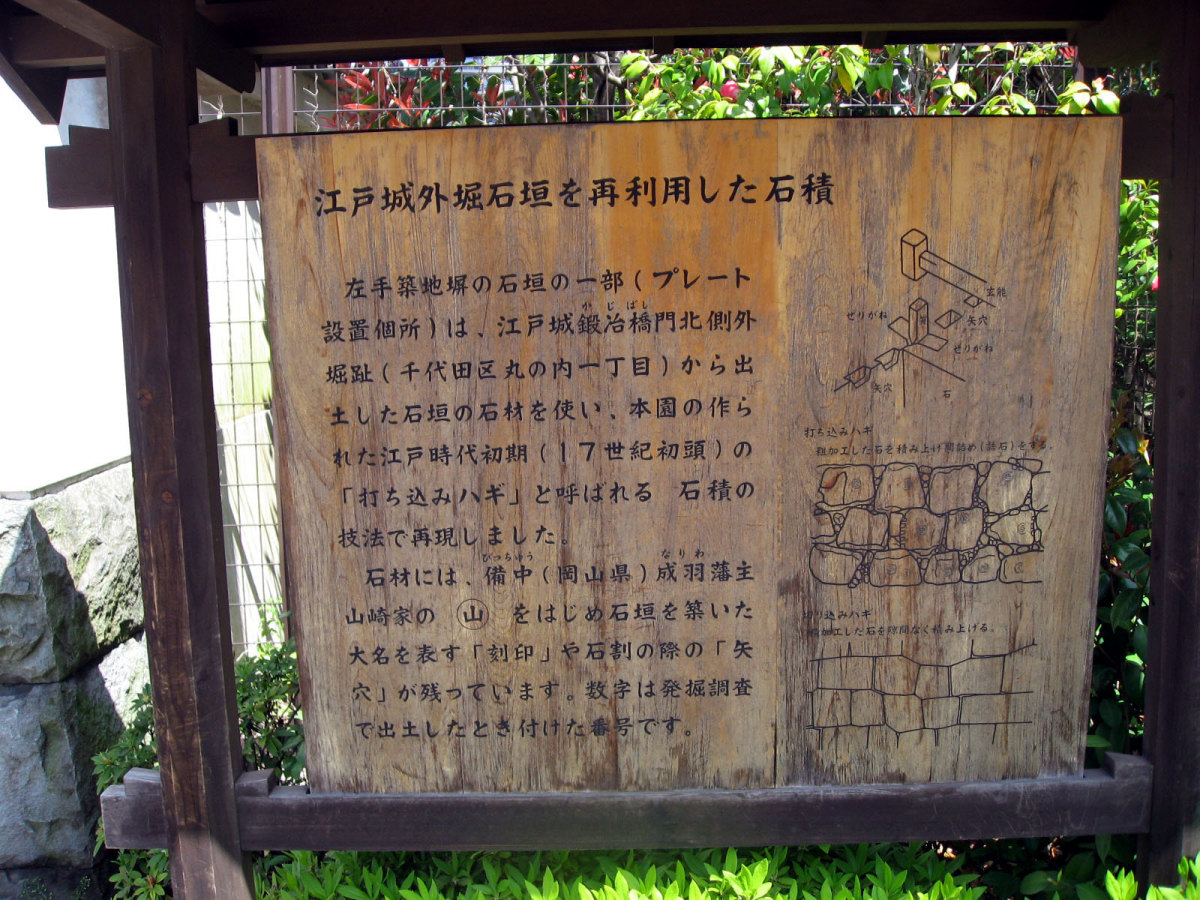 江戸城外堀石垣を再利用した石積
左手築地塀の石垣の一部(プレート
設置個所)は、江戸城鍛冶橋門北側外
かじばし
堀趾(千代田区丸の内一丁目)から出
土した石垣の石材を使い、本園の作ら
れた江戸時代初期(17世紀初頭)の
「打ち込みハギ」と呼ばれる 石積の
技法で再現しました。
石材には、備中(岡山県)成羽藩主
びっちゅう なりわ
山崎家の ㊤をはじめ石垣を築いた
大名を表す「刻印」や石割の際の「矢
穴」が残っています。数字は発掘調査
で出土したとき付けた番号です。
玄能
せりがね
矢
矢穴
せりがね
矢穴
石
打ち込みハギ
粗加工した石を積み上げ間詰め(詰石)をする。
切り込みハギ
加工した石を隙間なく積み上げる。